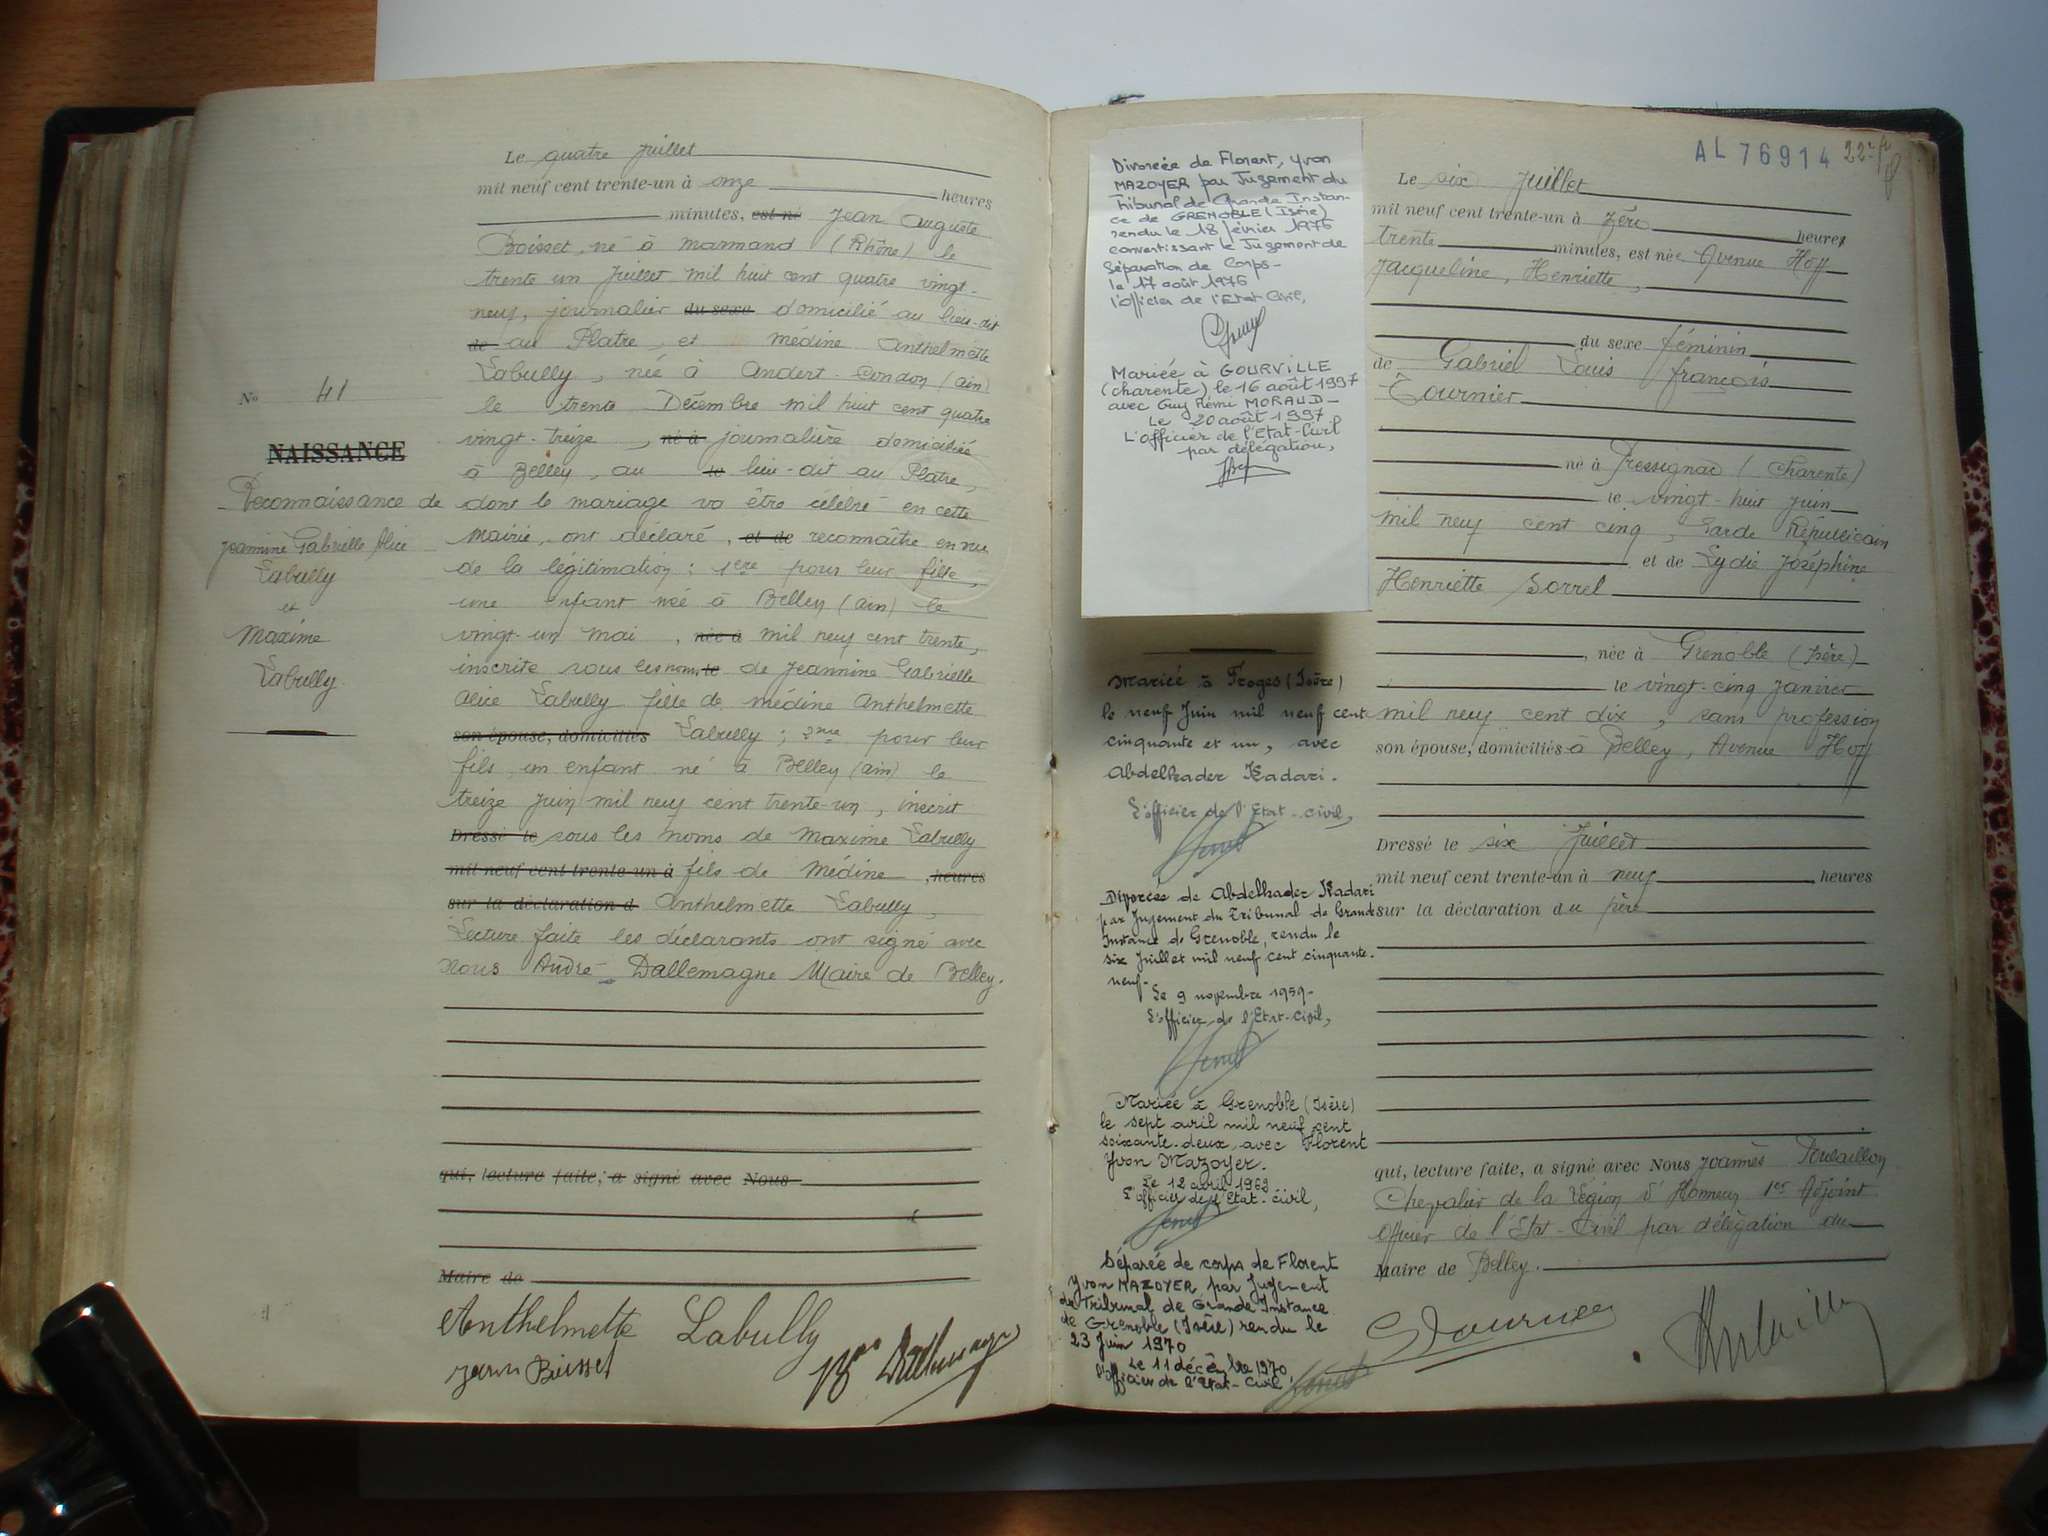 Le quatre Juillet
mil neuf cent trente-un à onze heures
minutes, est né Jean Auguste
Boisset, né à Marmand (Rhône) le
trente un Juillet mil huit cent quatre vingt-
neuf, journalier du sexe domicilié au lieu-dit
de au Platre, et médine Anthelmette
Labully, née à Andert-Condon (ain)
le trente Décembre mil huit cent quatre
N° 41
vingt-treize, né à journalière domiciliée
NAISSANCE
à Belley, au le lieu-dit au Platre,
Reconnaissance de
dont le mariage va être célébré en cette
Jeannine Gabrielle Alice
Mairie, ont déclaré, et de reconnaître en vue
Labully
de la légitimation : 1ère pour leur fille,
et
une enfant née à Belley (ain) le
Maxime
vingt-un mai, née à mil neuf cent trente,
Labully.
inscrite sous les noms le de Jeannine Gabrielle
Alice Labully fille de médine Anthelmette
son épouse, domiciliés Labully ; 2me pour leur
fils, un enfant né à Belley (ain) le
treize Juin mil neuf cent trente-un, inscrit
Dressé le sous les noms de Maxime Labully
mil neuf cent trente-un à fils de Médine, heures
sur la déclaration d Anthelmette Labully,
Lecture faite les déclarants ont signé avec
Nous André Dallemagne Maire de Belley.
qui, lecture faite, a signé avec Nous
Maire de
Anthelmette Labully
Jean Boisset
Divorcée de Florent, Yvon
MAZOYER par Jugement du
Tribunal de Grande Instan-
ce de GRENOBLE (Isère)
rendu le 18 février 1976
convertissant le Jugement de
Séparation de Corps-
le 17 août 1976
l'Officier de l'Etat Civil,
Mariée à GOURVILLE
(charente) le 16 août 1997
avec Guy Rémi MORAUD-
Le 20 août 1997
L'Officier de l'Etat-Civil
par délégation,
Mariée à Froges (Isère)
le neuf Juin mil neuf cent
cinquante et un, avec
Abdelkader Kadari.
L'officier de l'Etat-civil,
Divorcée de Abdelkader Kadari
par Jugement du Tribunal de Grande
Instance de Grenoble, rendu le
six Juillet mil neuf cent cinquante-
neuf-
Le 9 novembre 1959-
L'officier de l'Etat-Civil,
Mariée à Grenoble (Isère)
le sept avril mil neuf cent
soixante-deux, avec Florent
Yvon Mazoyer.
Le 12 avril 1962
L'officier de l'Etat-civil,
Séparée de corps de Florent
Yvon MAZOYER, par Jugement
du Tribunal de Grande Instance
de Grenoble (Isère) rendu le
23 Juin 1970
Le 11 décembre 1970
l'officier de l'Etat-Civil
AL 76914
Le six Juillet
mil neuf cent trente-un à zéro heures
trente minutes, est née Avenue Hoff
Jacqueline, Henriette,
du sexe féminin
de Gabriel Louis François
Tournier
né à Pressignac (Charente)
le vingt-huit juin
mil neuf cent cinq, Garde Républicain
et de Lydie Joséphine
Henriette Sorrel
née à Grenoble (Isère)
le vingt-cinq Janvier
mil neuf cent dix, sans profession
son épouse, domiciliés à Belley, Avenue Hoff
Dressé le six Juillet
mil neuf cent trente-un à neuf heures
sur la déclaration du père
qui, lecture faite, a signé avec Nous Joannès
Chevalier de la Légion d'Honneur 1er Adjoint
Officier de l'Etat-Civil par délégation du
Maire de Belley.
GTournier